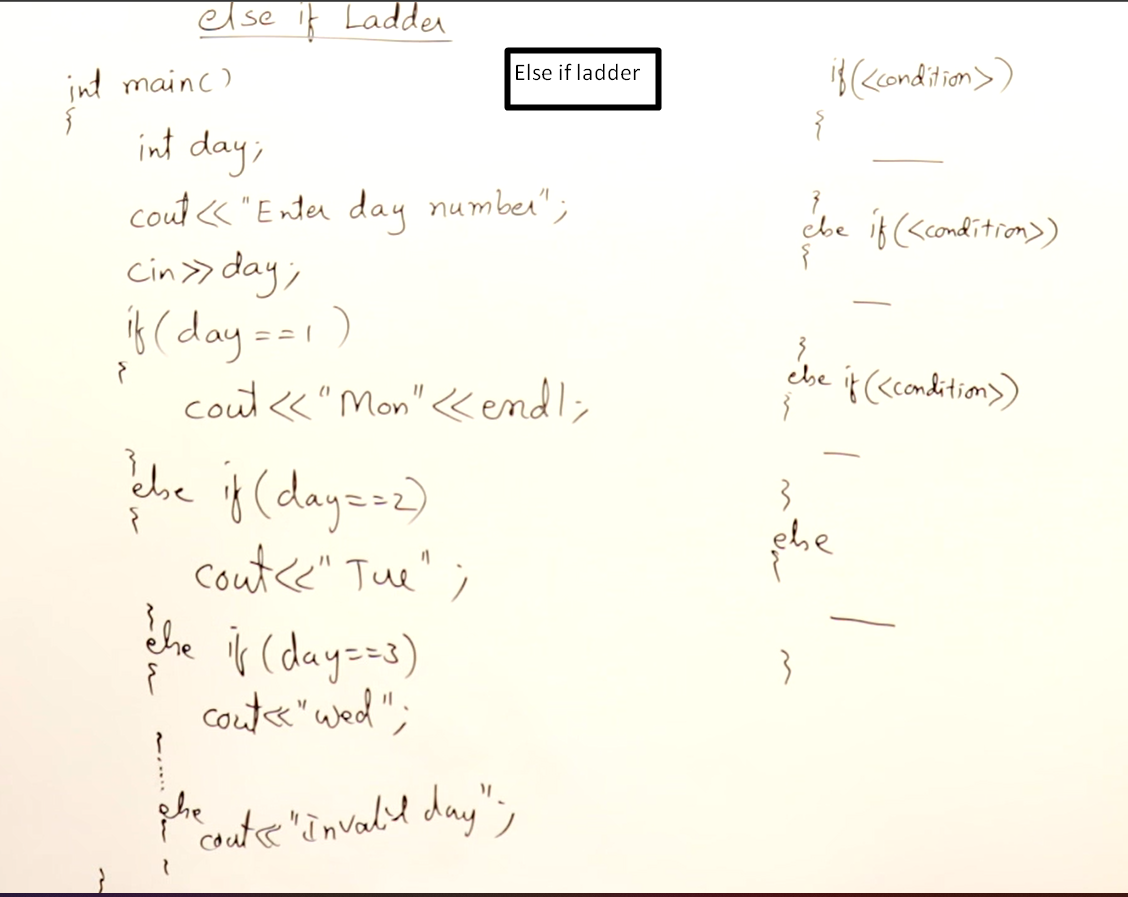 else if Ladder
Else if ladder
int main()
{
int day;
cout<<"Enter day number";
cin>>day;
if(day==1)
{
cout<<"Mon"<<endl;
}
else if(day==2)
{
cout<<"Tue";
}
else if(day==3)
{
cout<<"wed";
}
......
else
{
cout<<"Invalid day";
}
}
if(<condition>)
{
___
}
else if(<condition>)
{
___
}
else if(<condition>)
{
___
}
else
{
___
}